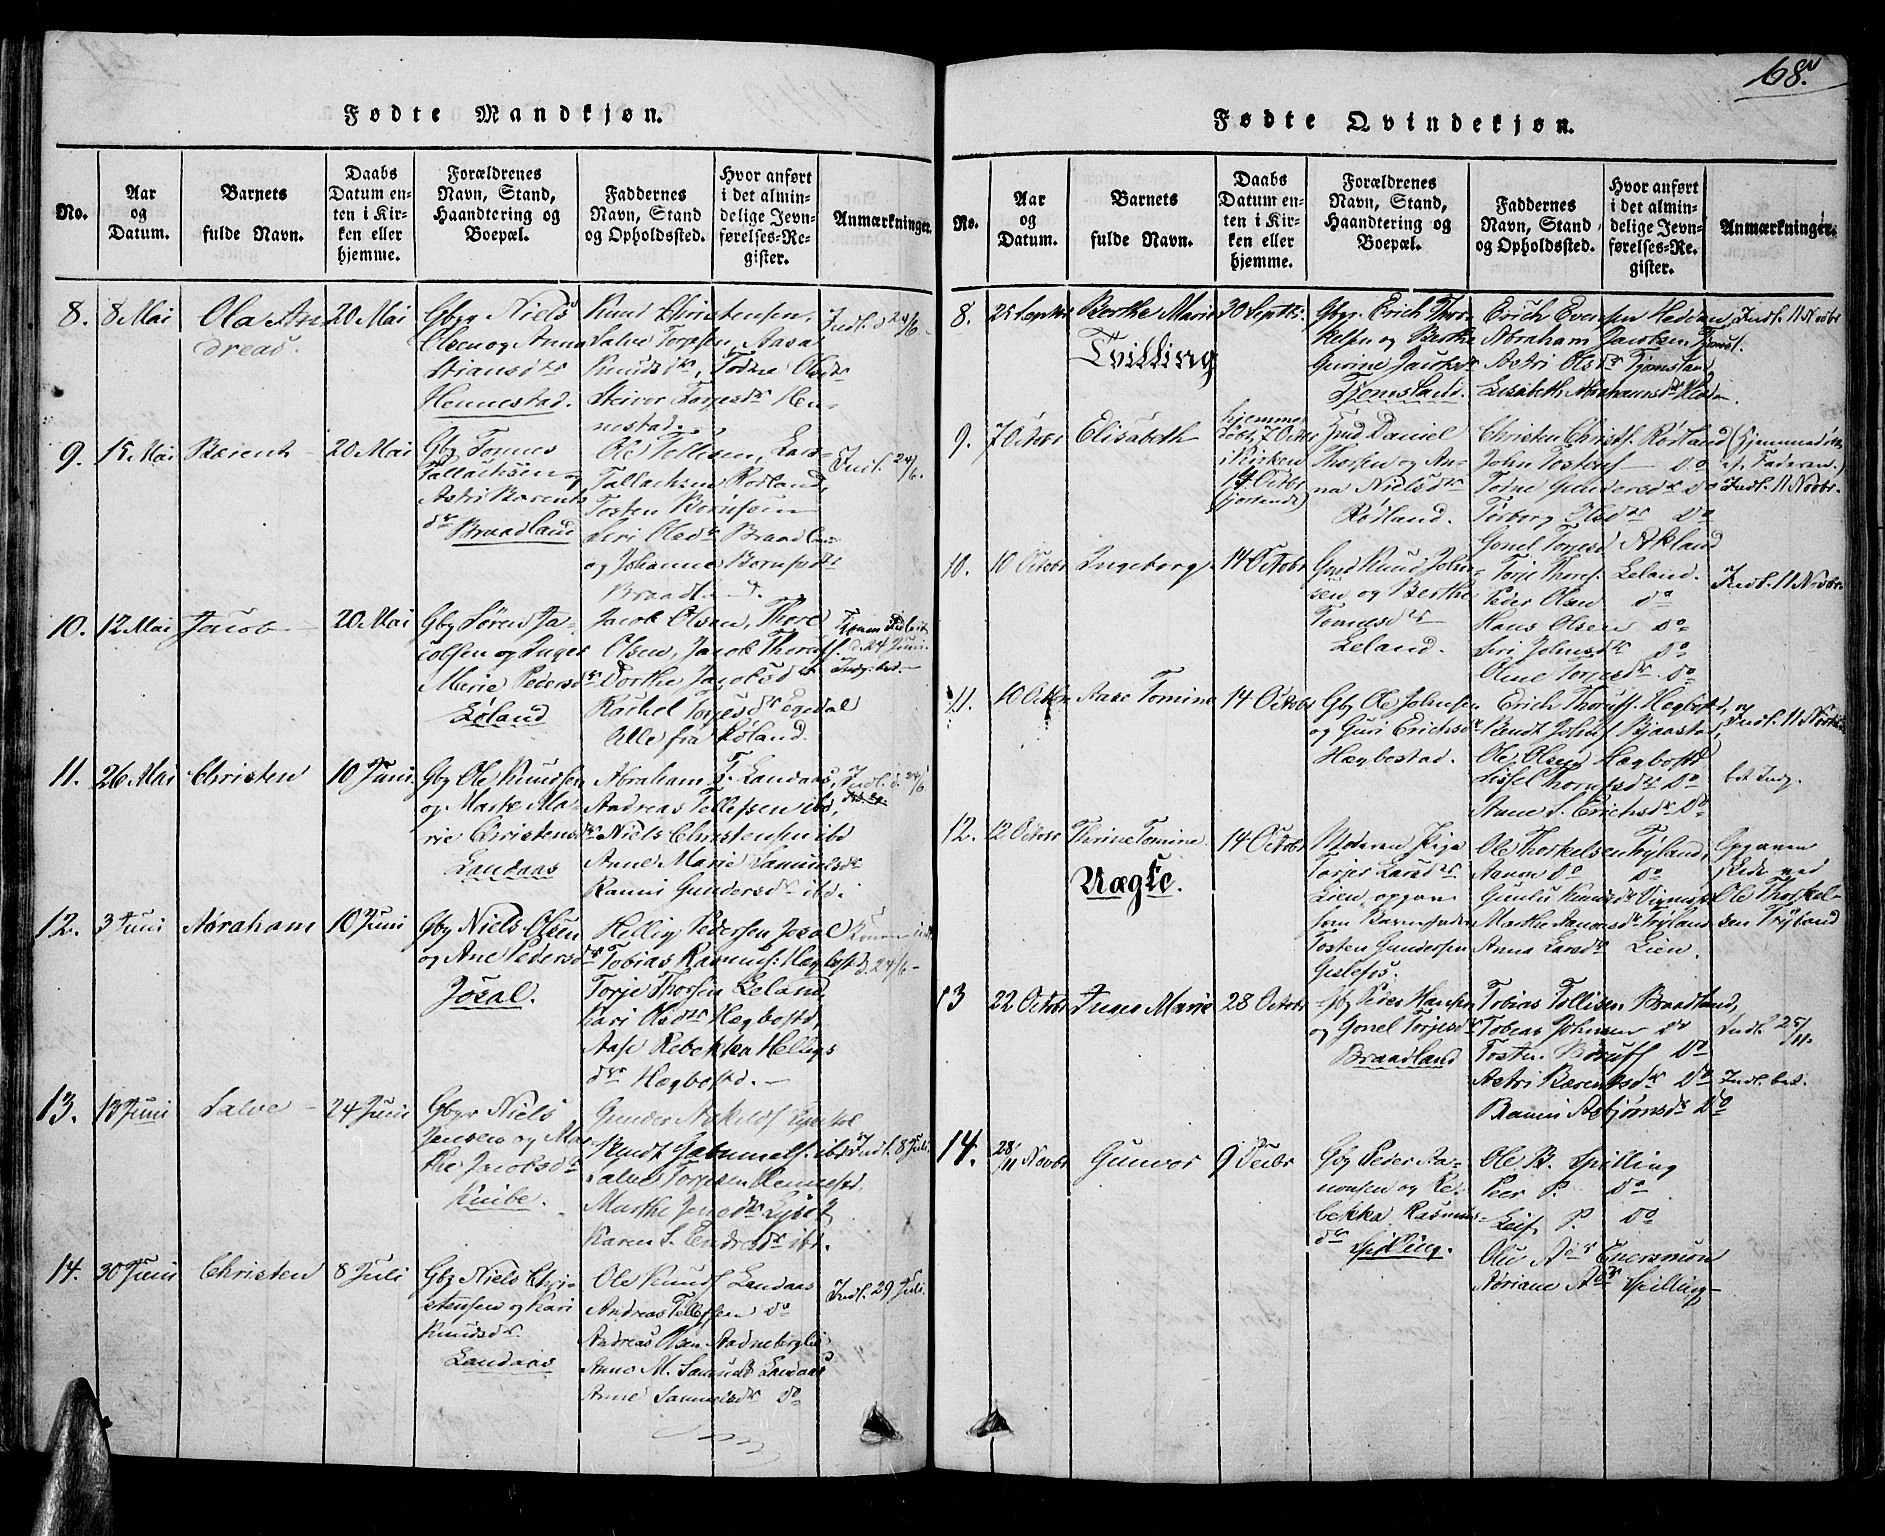 68.
Fødte Mandkjøn.
No.
Aar
og
Datum.
Barnets
fulde Navn.
Daabs
Datum en-
ten i Kir-
ken eller
hjemme.
Forældrenes
Navn, Stand,
Haandtering og
Boepæl.
Faddernes
Navn, Stand
og Opholdssted.
Hvor anført
i det almin-
delige Jevn-
førelses-Re-
gister.
Anmærkninger.
8.
8 Mai
Ola An
dreas.
20 Mai
Gbgr Niels
Olsen og Anna
Stiansdtr
Hennestad.
Knud Christensen,
Salve Torjesen, Aasa
Knudsdtr, Todne Olsdtr
Torjesdtr Hen-
nestad.
Indl. d 24/6
9.
15 Mai
Berent
20 Mai
Gbg Tonnes
Tallachsen og
Astri Barents
dtr Braadland
Ole Tellisen, Lars
Tallachsen Rødland,
Tosten Børufsen
Siri Olsdtr Braadland
og Johanne Børufsdtr
Braadl.
Indl. 24/6.
10.
12 Mai
Jacob
20 Mai
Gbg Søren Ja-
cobsen og Inger
Marie Pedersdtr
Eøland
Jacob Olsen, Thore
Olsen, Jacob Thoresf.
Dorthe Jacobsdtr
Rachel Torjesdtr Egedal
Alle fra Røland.
d. 24 Juni.
11.
26 Mai
Christen
10 Juni
Gbg Ole Knudsen
og Marthe Ma-
rie Christensdtr
Landaas
Abraham T. Landaas,
Andreas Tellefsen ibd,
Niels Christensen ibd
Anne Marie Samuelsdtr
Ramri Gundersdtr ibd.
Indl. d. 24/6
12.
3 Juni
Abraham
10 Juni
Gbg Niels Olsen
og Ane Pedersdtr
Josal.
Hellig Pedersen Josal
Tobias Rasmus: Hægbostd
Torje Thorsen Leland,
Kari Olsdtr Hægbostd,
Aase Rebekka Helligs
dtr Hægbostd.
Konen indl
d. 24/6
13.
13 Juni
Salve
24 Juni
Gbgr Niels
Jensen og Mar
the Jacobsdtr
Knibe.
Gunder
Knudt Gammels. ibd
Salve Torjesen Hennestd
Marthe Jensdtr
Karen S. Endresdtr ibd.
Indl. 8 Juli.
14.
30 Juni
Christen
8 Juli
Gbg Niels Chri-
stensen og Kari
Knudsdtr.
Landaas
Ole Knuds Landaas
Andreas Tellefsen do
Andreas Olsen Aadneberglie
Anne M. Samuelsdtr Landaas
Anne Samuelsdtr do
Indl. 29 Juli.
Fødte Qvindekjøn.
No.
Aar
og
Datum.
Barnets
fulde Navn.
Daabs
Datum en-
ten i Kir-
ken eller
hjemme.
Forældrenes
Navn, Stand,
Haandtering og
Boepæl.
Faddernes
Navn, Stand
og Opholdssted.
Hvor anført
i det almin-
delige Jevn-
førelses-Re-
gister.
Anmærkninger.
8.
25 Septbr
Berthe Marie
Tvilling
30 Septbr.
Gbgr. Erich Thor-
kelsen og Berthe
Gurine Jacobsdtr
Tjomsland.
Erich Evensen Heddan
Abraham Jacobsen Tjomsl.
Astri Olsdtr Tjomsland
Elisabeth Abrahamsdtr Hedda
Indl. 11 Novbr
9.
7 Octobr
Elisabeth
hjemme
døbt, 7 Octbr
i Kirken
14 Octbr
Daniel
Thorsen og An-
na Nielsdtr
Rødland.
Christen Christf. Rødland
John Tostens do
Todne Gundersdtr do
Torborg Olsdtr do
Gonel Torjesd Akland
(Hjemmedøbt
af Faderen.)
Indl. 11 Novbr.
10.
10 Octobr
Ingeborg
14 Octobr
Knud John-
sen og Berthe
Tomesdtr
Leland.
Torje Thores. Leland.
Peder Olsen do
Hans Olsen do
Siri Johnsdtr do
Oline Torjesdtr do
Indl. 11 Novbr.
11.
10 Octbr
Aase Tomine
14 Octobr
Gbg Ole Johnsen
og Guri Erichsdtr
Hægbestad.
Erich Hægbostd,
Bendt Johns Bjaastad,
Ole Olsen Hægbostd
Sissel do
Anne S. Erichsdtr do
Indl. 11 Novbr
bet Indg.
12.
12 Octobr
Therine Tomine
Uægte.
14 Octobr
Moderen Pige
Torjer Larsdtr
Lien opgav
som Barnefader
Tosten Gundersen
Gislefos.
Ole Thorkelsen Tryland,
Aanon do do
Gunlu Knudsdtr
Marthe Aanonsdtr Tryland
Anna Larsdtr Lien.
Opgaven
skede ved
Ole Thorkel-
sen Tryland
13
22 Octobr
Inger Marie
28 Octobr
Gbg Peder Hansen
og Gonel Torjesdtr
Braadland
Tobias Tollisen Braadland,
Tobias Johnsen do
Tosten Børufs do
Astri Barentsdtr do
Ramri Asbjørnsdtr do
Indl 25/11.
Indl. bet.
14.
28/11 Novbr
Gunvor
9 Decbr
Gbg Peder Aa-
nonsen og Re-
bekka Rasmus-
dtr
Spilling.
Ole B. Spilling
Peer P. do
Leif P. do
Olu Adtr Enersmoen
Adriane Adtr Spilling